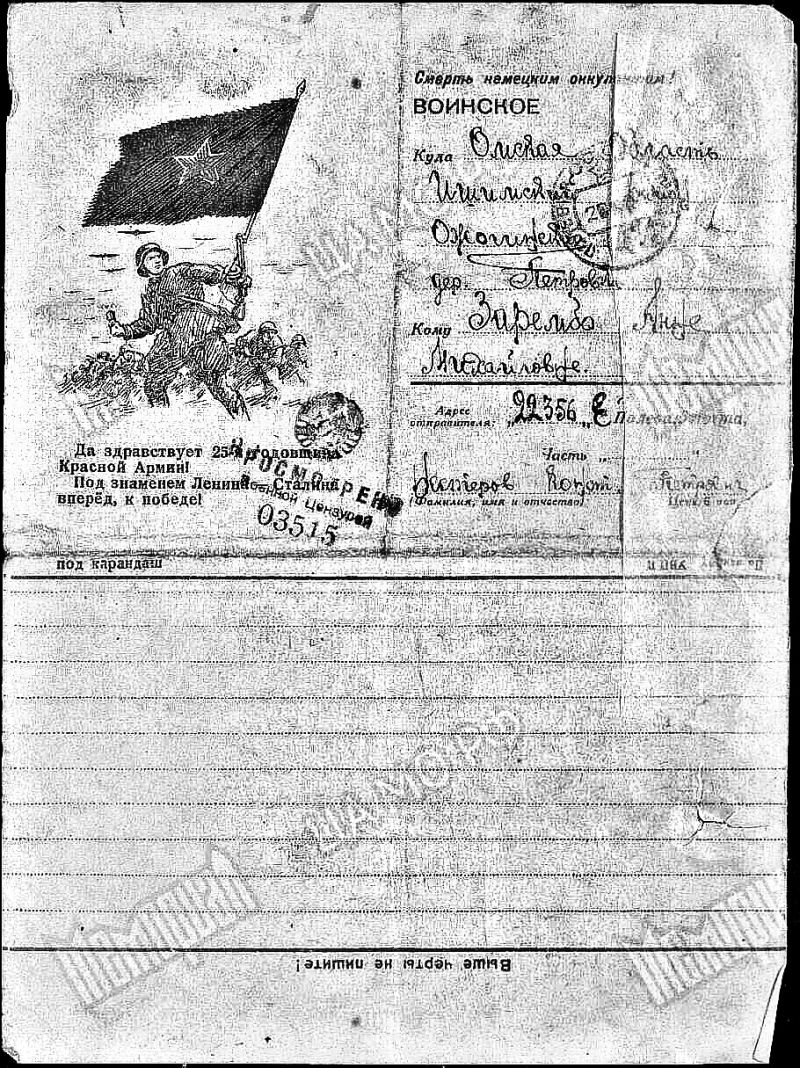 Смерть немецким оккупантам!
ВОИНСКОЕ
Куда Омская область
Ишимский
дер. Петровка
Кому Зарембо Анне
Михайловне.
Адрес отправителя: 22356 "Е" Полевая почта,
Часть
(Фамилия, имя и отчество)
Да здравствует 25-я годовщина
Красной Армии!
Под знаменем Ленина — Сталина
вперёд, к победе!
ПРОСМОТРЕНО
Военной Цензурой
03515
под карандаш
Выше черты не пишите!
ЦАМО.РФ
Мемориал
Мемориал
Мемориал